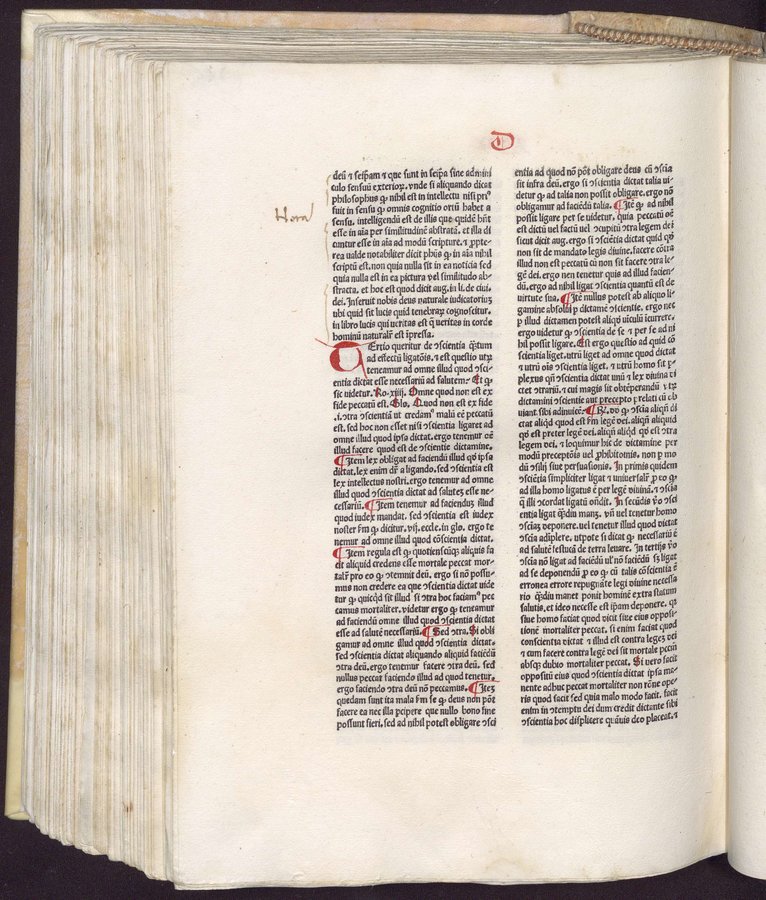 D
Nota
deū ⁊ seip̄am ⁊ que sunt in seip̄a sine admini
culo sensuū exterioꝝ. vnde si aliquando dicat
philosophus ꝙ nihil est in intellectu nisi priꝰ
fuit in sensu ꝙ omnis cognitio ortū habet a
sensu. intelligendū est de illis que quidē hn̄t
esse in aīa per similitudinē abstratā. et illa di
cuntur esse in aīa ad modū scripture. ⁊ ꝓpte-
rea ualde notabiliter dicit ph̄us ꝙ in aīa nihil
scriptū est. non quia nulla sit in ea noticia sed
quia nulla est in ea pictura vel similitudo ab-
stracta. et hoc est quod dicit aug. in li. de ciui.
dei. Inseruit nobis deus naturale iudicatoriuꝫ
ubi quid sit lucis quid tenebraꝝ cognoscitur.
in libro lucis qui ueritas est q̄ ueritas in corde
hominū naturalr̄ est īpressa.
Ertio queritur de ↄscientia q̄ꝫtum
ad effectū ligatōis. ⁊ est questio utꝝ
teneamur ad omne illud quod ↄsci-
entia dictat esse necessariū ad salutem. Et ꝙ
sic videtur. Ro. xiiij. Omne quod non est ex
fide peccatū est. Glo. Quod non est ex fide
.i. ↄtra ↄscientiā ut credamꝰ malū eē peccatū
est. sed hoc non esset nisi ↄscientia ligaret ad
omne illud quod ipsa dictat. ergo tenemur oē
illud facere quod est de ↄscientie dictamine.
¶ Item lex obligat ad faciendū illud qḋ ip̄sa
dictat. lex enim dr̄ a ligando. sed ↄscientia est
lex intellectus nostri. ergo tenemur ad omne
illud quod ↄscientia dictat ad saluteꝫ esse ne-
cessariū. ¶ Item tenemur ad faciendus illud
quod iudex mandat. sed ↄscientia est iudex
noster ẜm ꝙ dicitur. vij. eccle. in glo. ergo te
nemur ad omne illud quod cōscientia dictat.
¶ Item regula est ꝙ quotienscūqꝫ aliquis fa
cit aliquid credens esse mortale peccat mor-
talr̄ pro eo ꝙ ↄtemnit deū. ergo si nō possu-
mus non credere ea que ↄscientia dictat vide
tur ꝙ quicqḋ sit illud si ↄtra hoc faciamꝰ pec
camus mortaliter. videtur ergo ꝙ teneamur
ad faciendū omne illud quod ↄscientia dictat
esse ad salutē necessariū. ¶ Sed ↄtra. Si obli
gamur ad omne illud quod ↄscientia dictat.
sed ↄscientia dictat aliquando aliquid faciēdū
ↄtra deū. ergo tenemur facere ↄtra deū. sed
nullus peccat faciendo illud ad quod tenetur.
ergo faciendo ↄtra deū nō peccamus. ¶ Iteꝫ
quedam sunt ita mala ẜm se ꝙ deus non pōt
facere ea nec illa p̄cipere que nullo bono fine
possunt fieri. sed ad nihil potest obligare ↄsci
entia ad quod nō pōt obligare deus cū ↄscīa
sit infra deū. ergo si ↄscientia dictat talia vi-
detur ꝙ ad talia non possit obligare. ergo nō
obligamur ad faciēdū talia. ¶ Itē ꝙ ad nihil
possit ligare per se videtur. quia peccatū oē
est dictū vel factū vel ↄcupitū ↄtra legem dei
sicut dicit aug. ergo si ↄsciētia dictat quid qḋ
non sit de mandato legis diuine. facere cōtra
illud non est peccatū cū non sit facere ↄtra le-
gē dei. ergo non tenetur quis ad illud facien-
dū. ergo ad nihil ligat ↄscientia quātū est de
virtute sua. ¶ Itē nullus potest ab aliquo li-
gamine absolui ꝑ dictamē ↄscientie. ergo nec
ꝑ illud dictamen potest aliqḋ uīculū īcurrere.
ergo videtur ꝙ ↄscientia de se ⁊ per se ad ni
hil possit ligare. Est ergo questio ad quid cō
scientia liget. utrū liget ad omne quod dictat
⁊ utrū oīs ↄscientia liget. ⁊ utrū homo sit ꝑ-
plexus qn̄ ↄscientia dictat unū ⁊ lex diuina di
ctet ↄtrariū. ⁊ cui magis sit obtēperandū ⁊ utꝝ
dictamini ↄscientie aut precepto prelati cū ob
uiant sibi adinuicē. ¶ Rn̄. dō ꝙ ↄscīa aliqn̄ di
ctat aliqḋ quod est ẜm legē dei. aliqn̄ aliquid
qḋ est preter legē dei. aliqn̄ aliqḋ qḋ est ↄtra
legem dei. ⁊ loquimur hic de dictamine per
modū preceptōis uel ꝓhibitionis. non ꝑ mo
dū ↄsilij siue persuasionis. In primis quidem
ↄsciētia simpliciter ligat ⁊ uniuersalr̄ ꝓ eo ꝙ
ad illa homo ligatus ē per legē diuinā. ⁊ ↄscīa
q̄ illi ↄcordat ligatū on̄dit. In secūdis vō ↄsci
entia ligat q̄ꝫdiu manꝫ. vn̄ uel tenetur homo
ↄsciaꝫ deponere. uel tenetur illud quod dictat
ↄscīa adīplere. utpote si dicat ꝙ necessariū ē
ad salutē festucā de terra leuare. In tertijs vō
ↄscīa nō ligat ad faciēdū ul' nō faciēdū sꝫ ligat
ad se deponendū ꝓ eo ꝙ cū talis cōscientia ē
erronea errore repugnāte legi diuine necessa
rio q̄ꝫdiu manet ponit hominē extra statum
salutis. et ideo necesse est ip̄am deponere. qꝛ
siue homo faciat quod dicit siue eius opposi-
tionē mortaliter peccat. si enim faciat quod
conscientia dictat ⁊ illud est contra legeꝫ dei
⁊ cum facere contra legē dei sit mortale peccm̄
absqꝫ dubio mortaliter peccat. Si vero facit
oppositū eius quod ↄscientia dictat ipsa ma-
nente adhuc peccat mortaliter non rōne ope-
ris quod facit sed quia malo modo facit. facit
enim in ↄtemptu dei dum credit dictante sibi
ↄscientia hoc displicere q̄uis deo placeat. ⁊